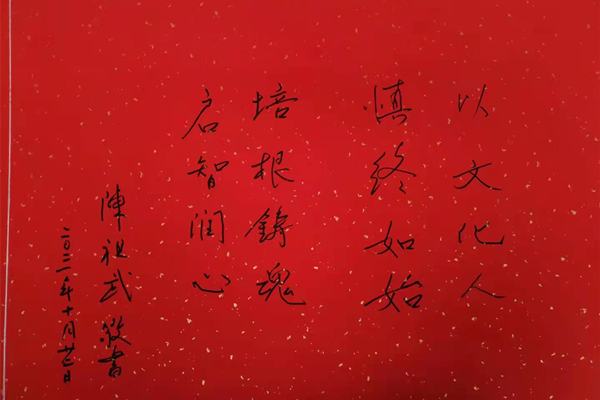 以文化人
慎终如始
培根鋳魂
启智润心
陳祖武敬書
二〇二一年十月廿二日